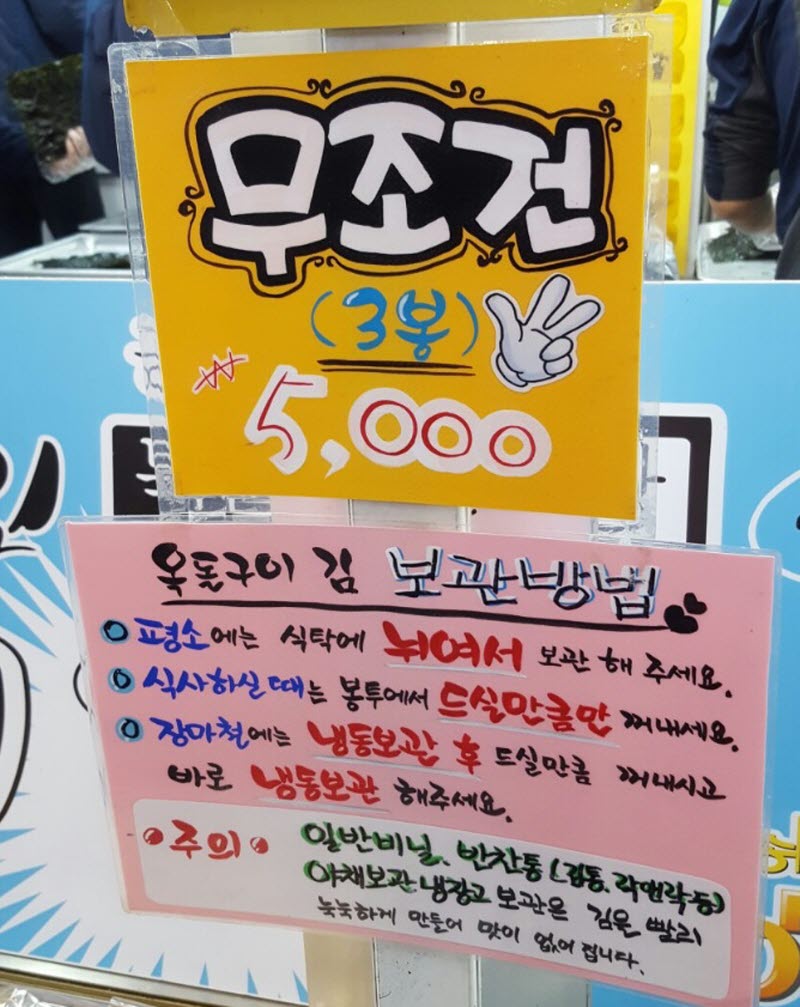 무조건
(3봉)
₩5,000
옥돌구이 김 보관방법
평소에는 식탁에 뉘여서 보관 해 주세요.
식사하실 때는 봉투에서 드실만큼만 꺼내세요.
장마철에는 냉동보관 후 드실만큼 꺼내시고
바로 냉동보관 해주세요.
주의
일반비닐, 반찬통(김통, 락앤락 등)
야채보관 냉장고 보관은 김을 빨리
눅눅하게 만들어 맛이 없어 집니다.